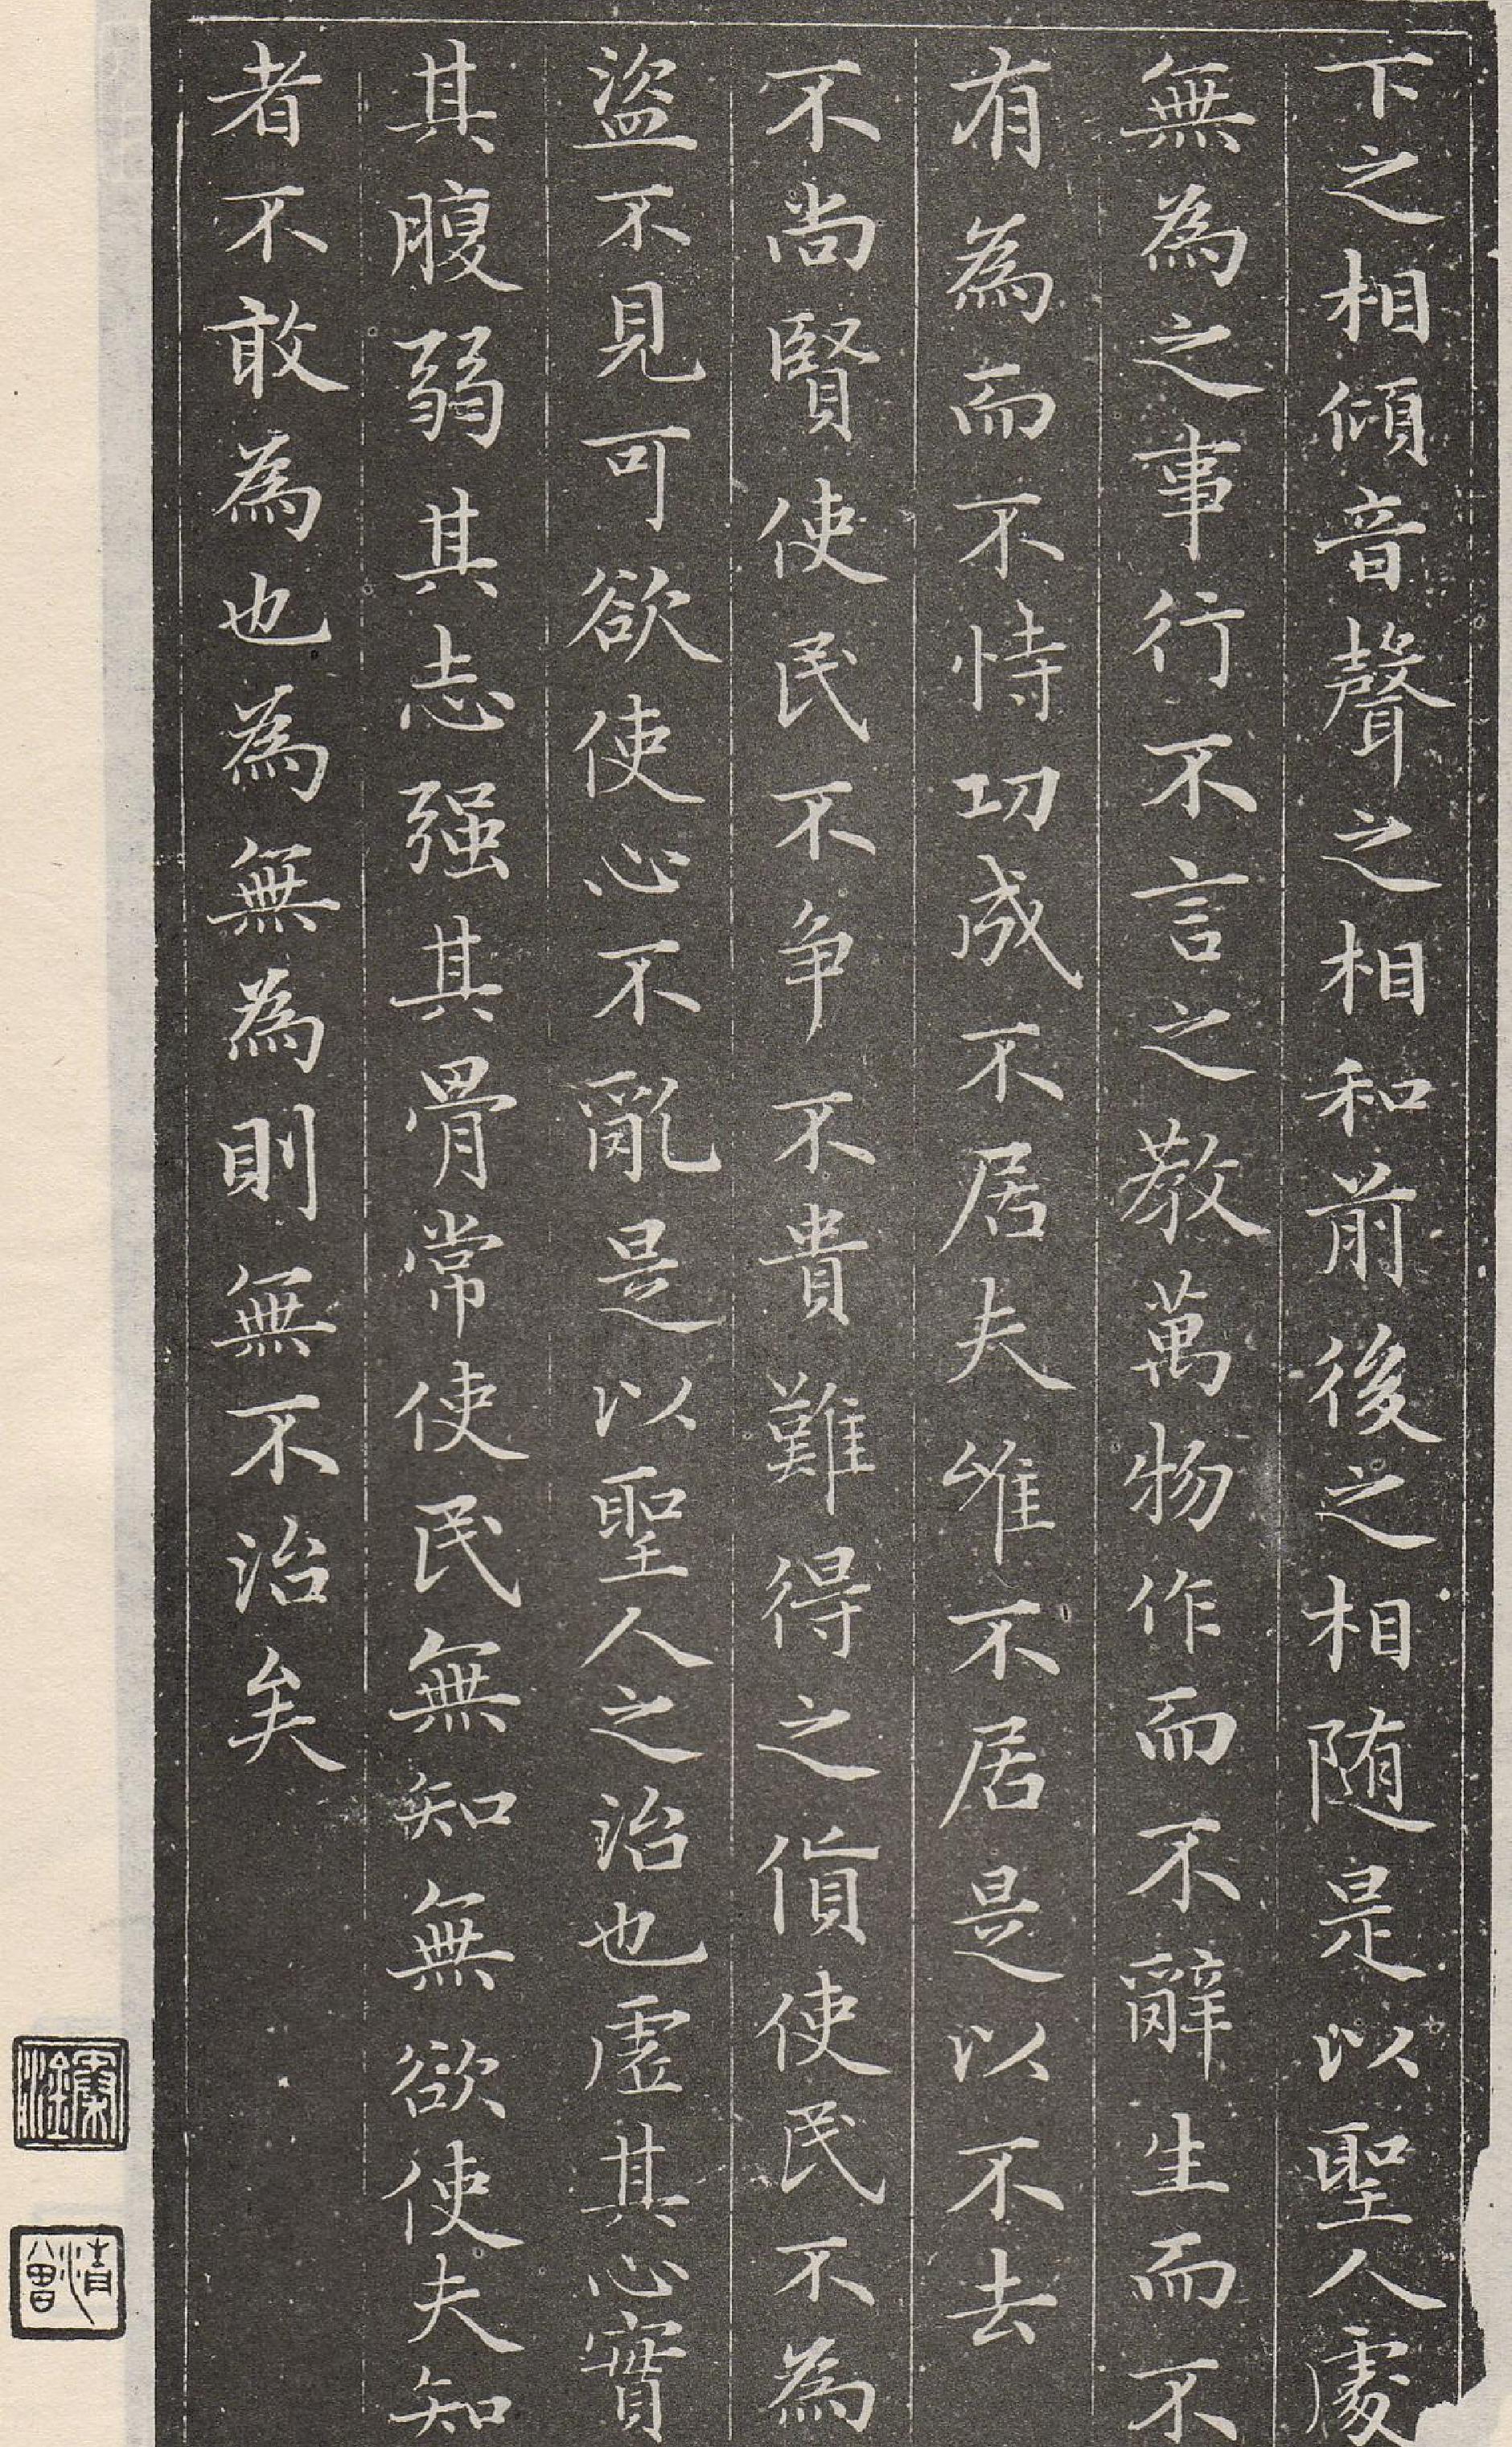 下之相傾音聲之相和前後之相随是以聖人處
無為之事行不言之教萬物作而不辭生而不
有為而不恃功成不居夫惟不居是以不去
不尚賢使民不争不貴難得之貨使民不為
盜不見可欲使心不亂是以聖人之治也虛其心實
其腹弱其志强其骨常使民無知無欲使夫知
者不敢為也為無為則無不治矣